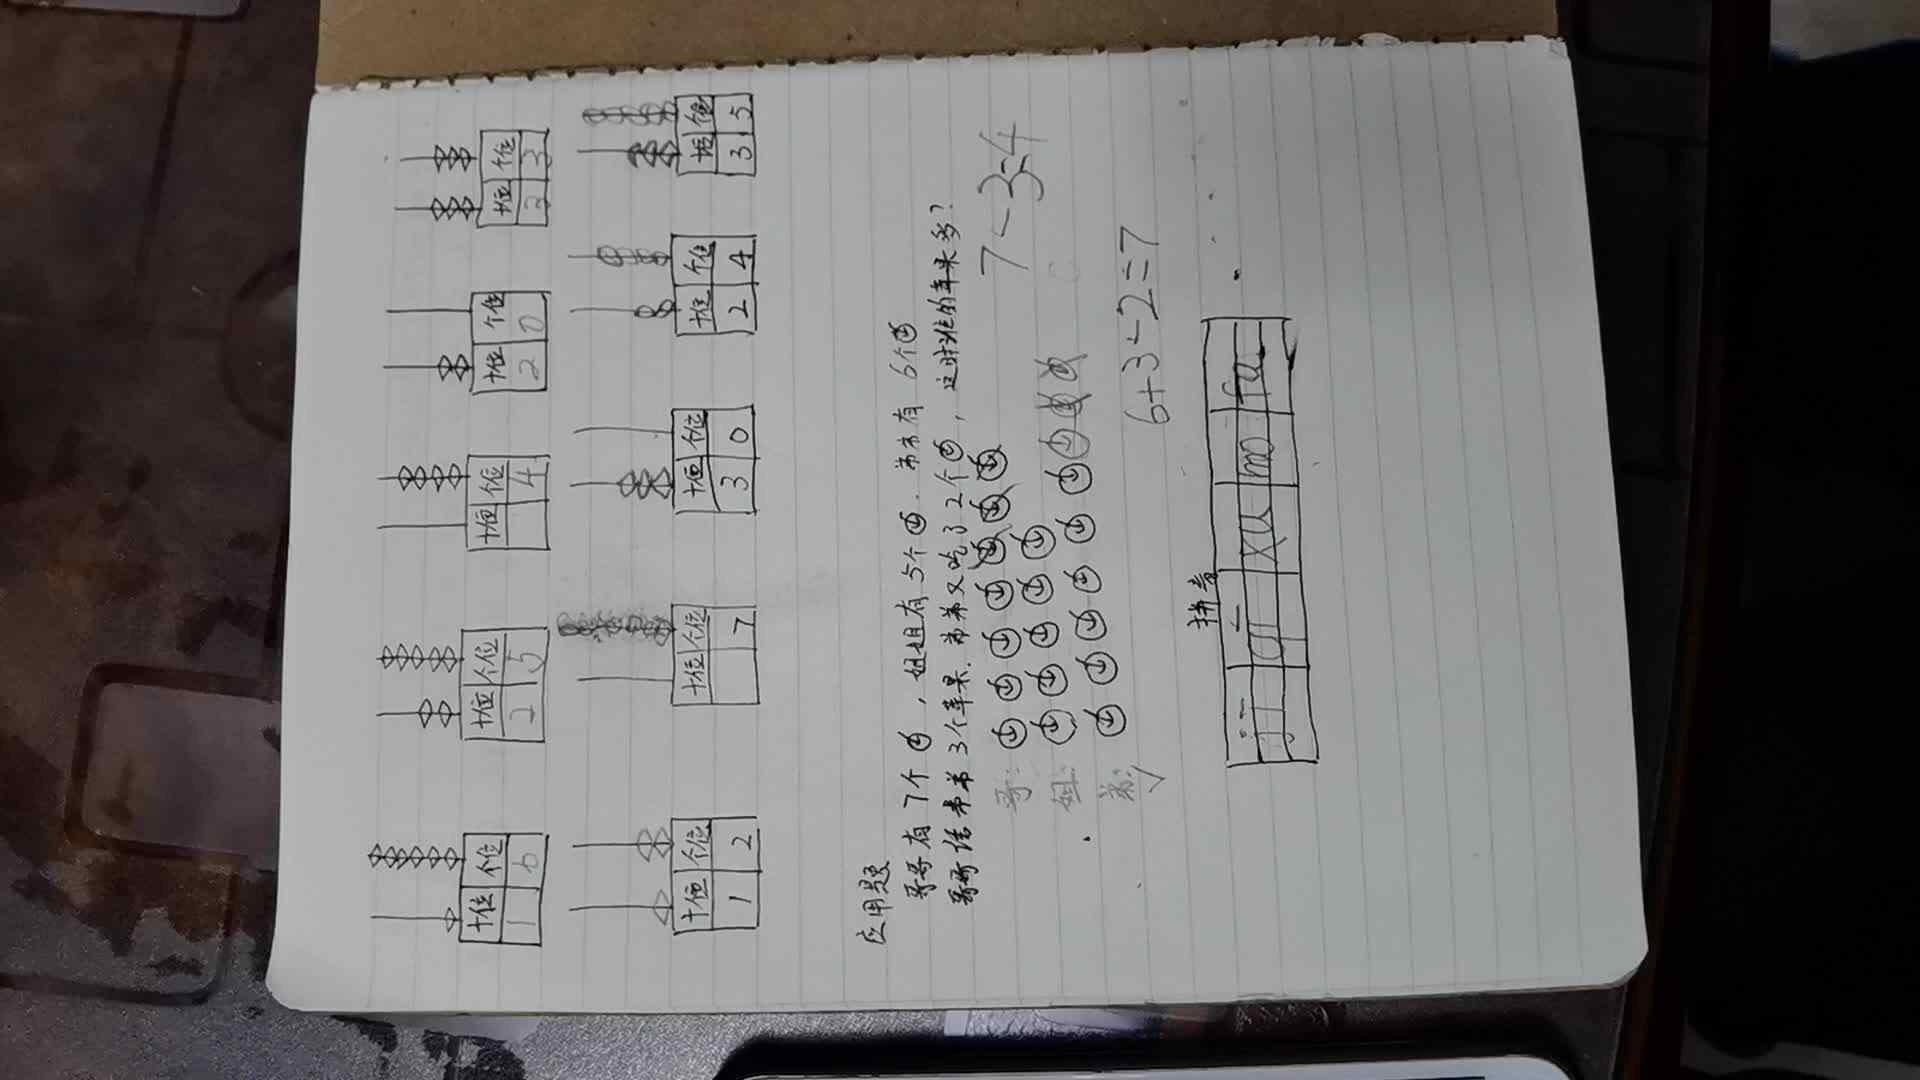 十位 个位 十位 个位 十位 个位 十位 个位 十位 个位
1 6 2 5 4 2 0 3 3
十位 个位 十位 个位 十位 个位 十位 个位 十位 个位
1 2 7 3 0 2 4 3 5
应用题
哥哥有7个, 姐姐有5个. 弟弟有6个
哥哥给弟弟3个苹果. 弟弟又吃了2个, 这时谁的苹果多?
哥: 7-3=4
姐:
弟: 6+3-2=7
拼音
xu mo fu